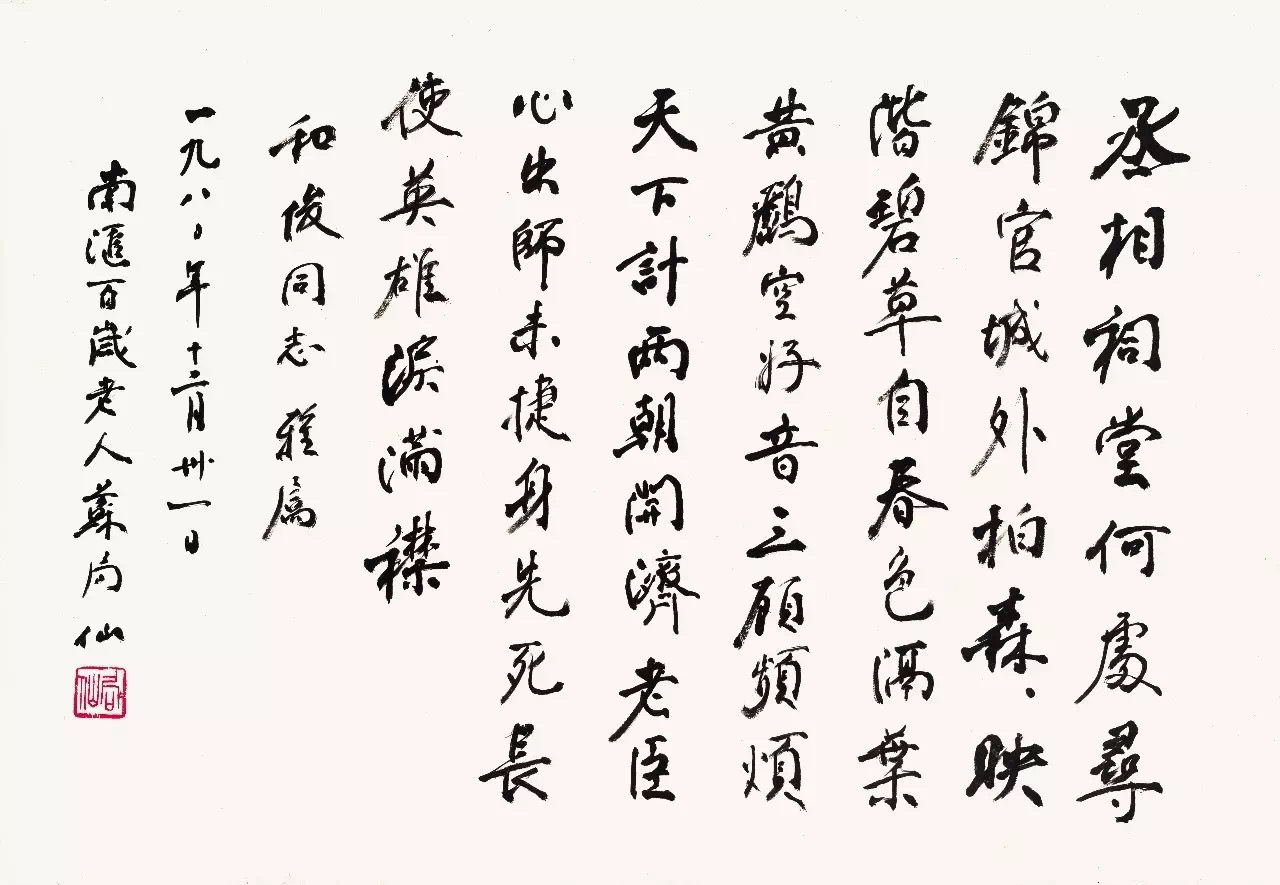 丞相祠堂何處尋
錦官城外柏森、映
階碧草自春色隔葉
黃鸝空好音三顧頻煩
天下計兩朝開濟老臣
心出師未捷身先死長
使英雄淚滿襟
和俊同志雅屬
一九八〇年十二月卅一日
南滙百歲老人蘇局仙
局仙